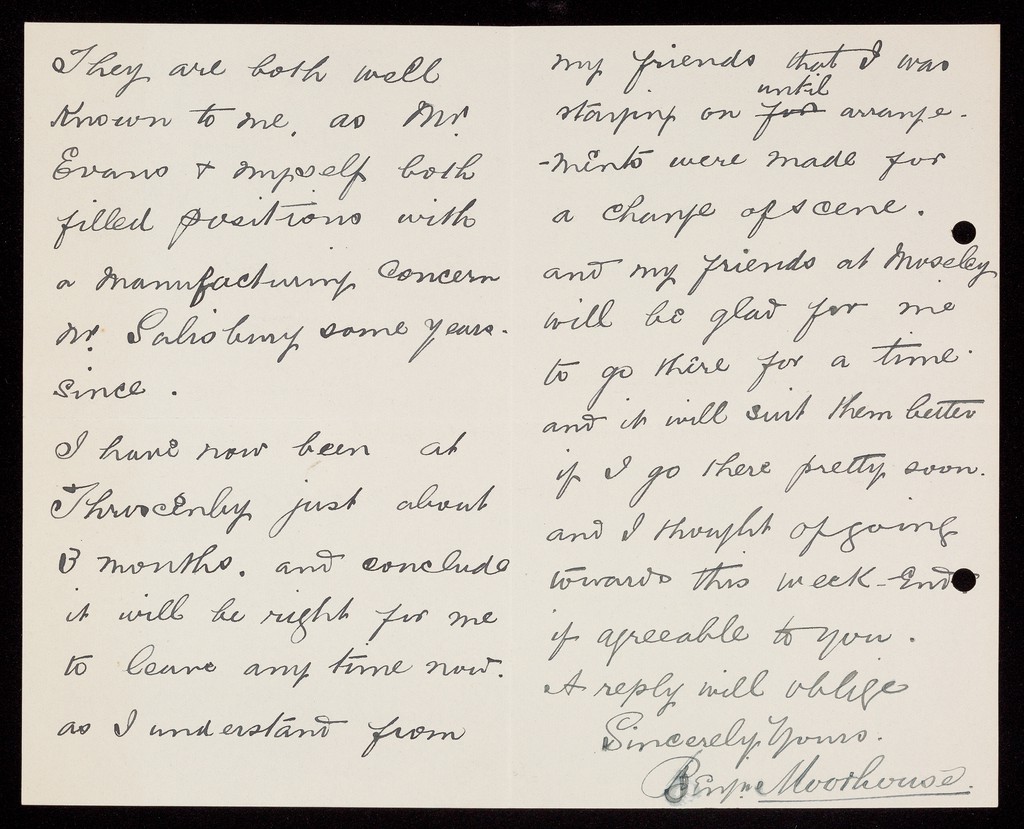 They are both well
known to me, as Mr.
Evans & myself both
filled positions with
a manufacturing Concern
nr. Salisbury some years.
since.
I have now been at
Thruxenby just about
3 months. and conclude
it will be right for me
to leave any time now.
as I understand from
my friends that I was
until
staying on for arrange-
-ments were made for
a change of scene.
and my friends at Moseley
will be glad for me
to go there for a time.
and it will suit them better
if I go there pretty soon.
and I thought of going
towards this week-End
if agreeable to you.
A reply will oblige
Sincerely Yours.
Benjn. Moorhouse.